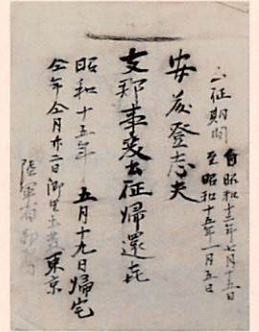 出征期間 自昭和十二年七月十五日
至昭和十五年一月五日
安茂登志夫
支那事変出征帰還兵
昭和十五年 五月十九日帰宅
仝年仝月廿二日御里土着東京
陸軍省